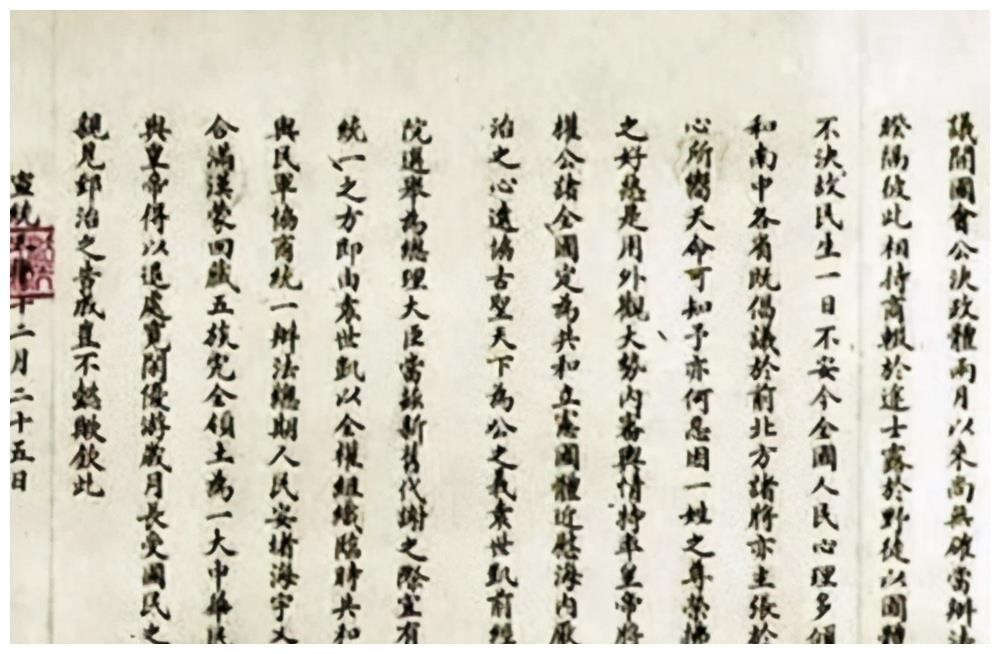 議開國會公決政體兩月以來尚無確當辦法
暌隔彼此相持商輟於途士露於野徒以國體
不決故民生一日不安今全國人民心理多傾
和南中各省既倡議於前北方諸將亦主張於
心所嚮天命可知予亦何忍因一姓之尊榮拂
之好惡是用外觀大勢內審輿情特率皇帝將
權公諸全國定為共和立憲國體近慰海內厭
治之心遠協古聖天下為公之義袁世凱前經
院選舉為總理大臣當茲新舊代謝之際宜有
統一之方即由袁世凱以全權組織臨時共和
與民軍協商統一辦法總期人民安堵海宇乂
合滿漢蒙回藏五族完全領土為一大中華民
與皇帝得以退處寬閒優游歲月長受國民之
親見郅治之告成豈不懿歟欽此
宣統 十二月二十五日